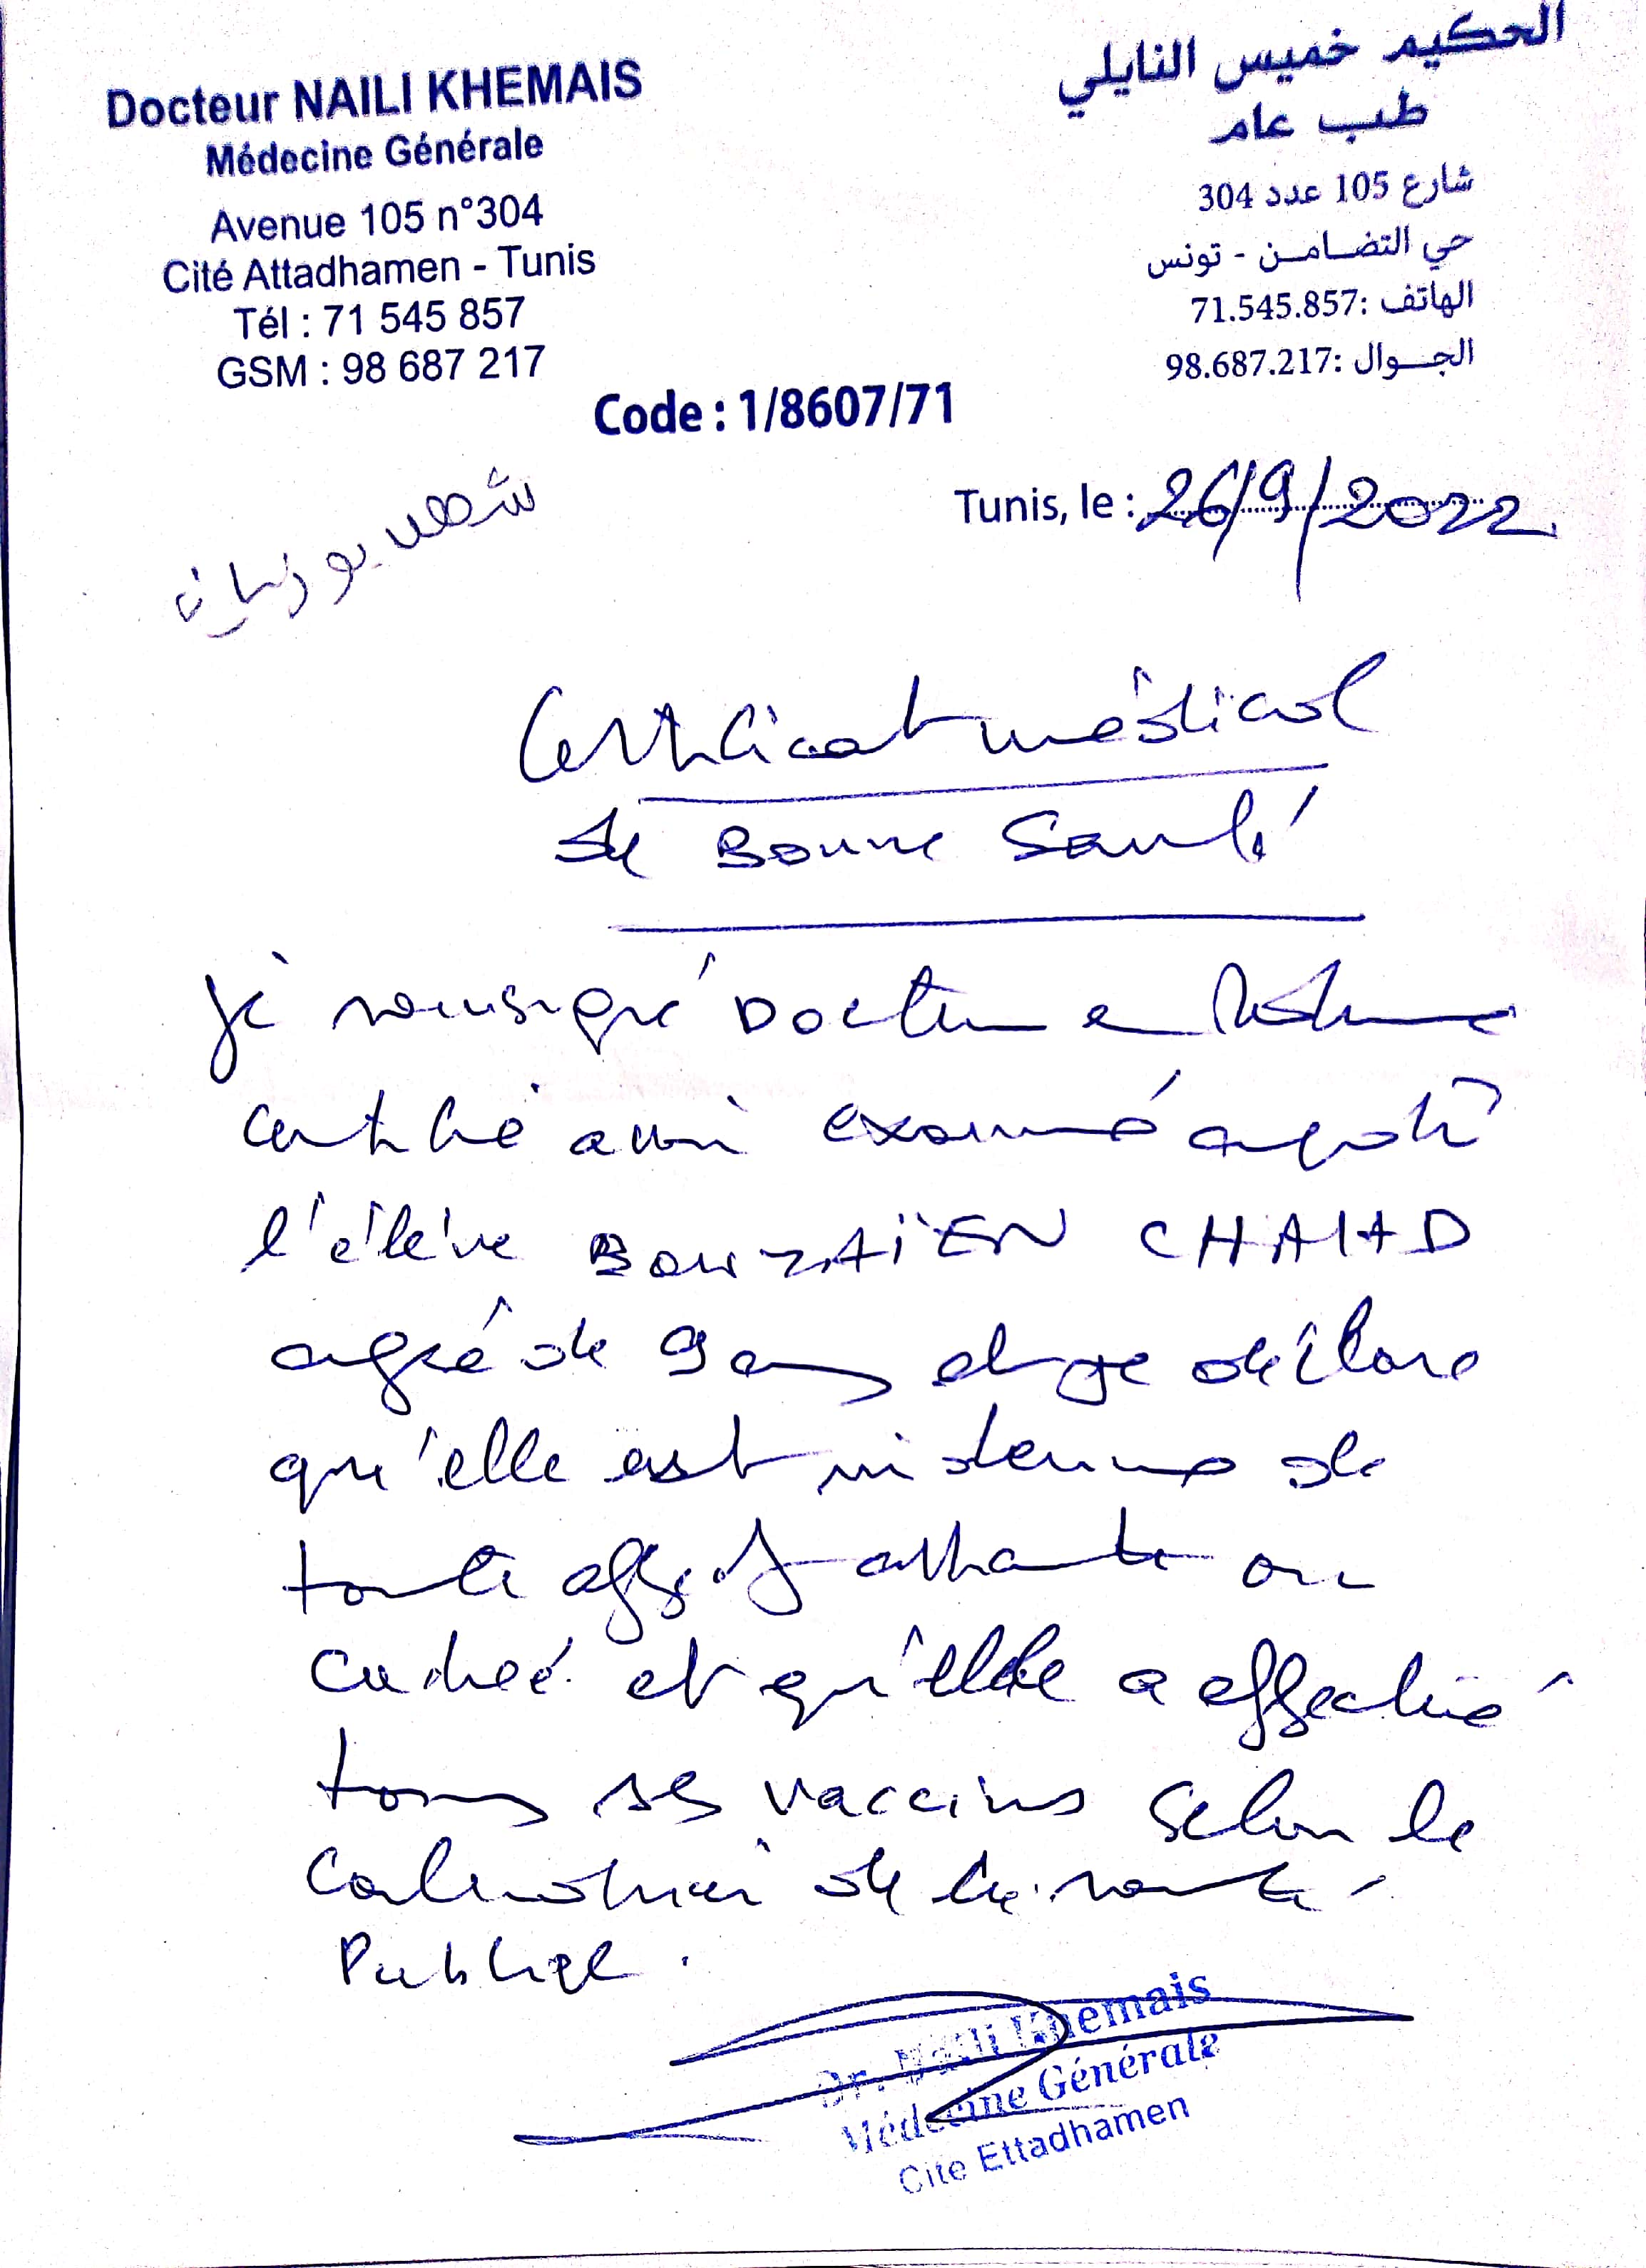 Docteur NAILI KHEMAIS
Médecine Générale
Avenue 105 n°304
Cité Attadhamen - Tunis
Tél : 71 545 857
GSM : 98 687 217
الحكيم خميس النايلي
طب عام
شارع 105 عدد 304
حي التضامن - تونس
الهاتف :71.545.857
الجوال :98.687.217
Code : 1/8607/71
Tunis, le : 26/9/2022
شهد بوزيان
Certificat médical
de Bonne Santé
Je soussigné Docteur en Médecine
certifie avoir examiné
l'élève BOUZAÏEN CHAHD
agée de 9 ans et je déclare
qu'elle est indemne de
toute affect apparente ou
cachée et qu'elle a effectué
tous ses vaccins selon le
calendrier de la santé
Publique.
Dr. Naili Khemais
Médecine Générale
Cité Ettadhamen